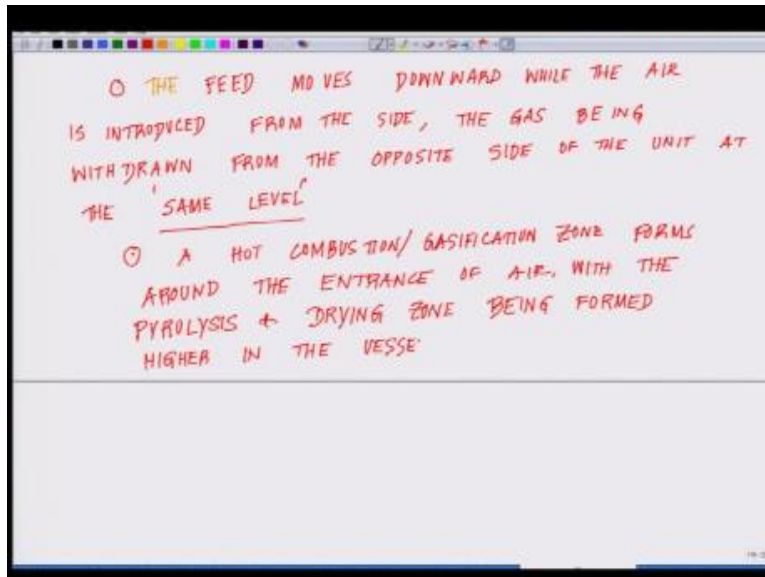 THE FEED MOVES DOWNWARD WHILE THE AIR
IS INTRODUCED FROM THE SIDE, THE GAS BEING
WITHDRAWN FROM THE OPPOSITE SIDE OF THE UNIT AT
THE 'SAME LEVEL'
A HOT COMBUSTION/GASIFICATION ZONE FORMS
AROUND THE ENTRANCE OF AIR, WITH THE
PYROLYSIS & DRYING ZONE BEING FORMED
HIGHER IN THE VESSE